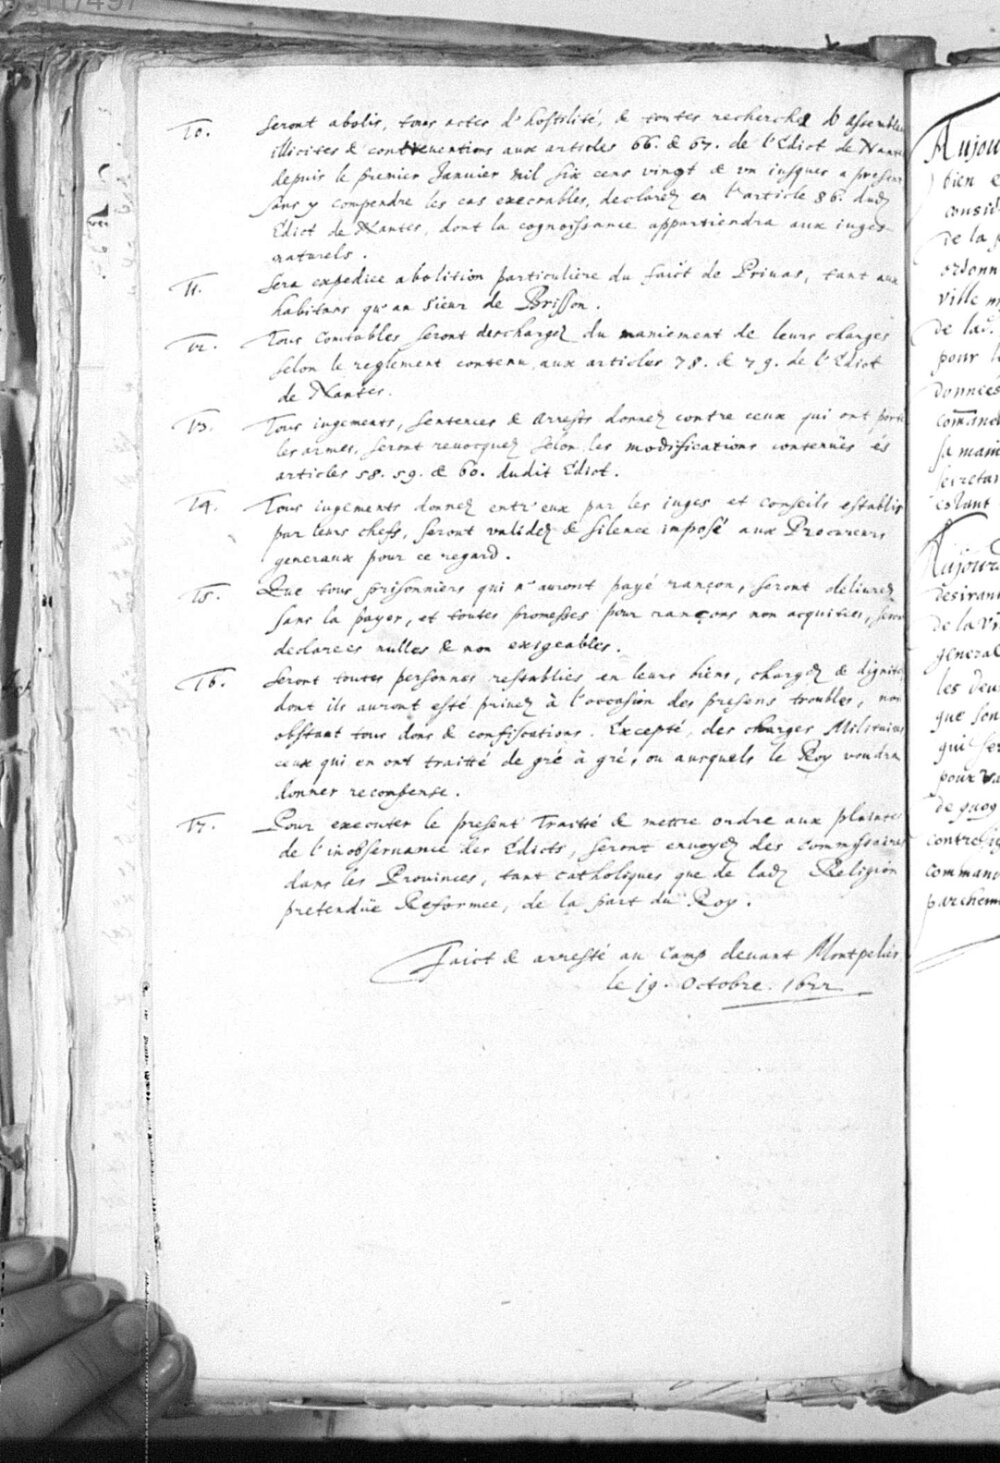 10. Seront abolis, tous actes d'hostilité, & toutes recherches d'assemblees
illicites & contreuentions aux articles 66. & 67. de l'Edict de Nantes
depuis le premier Januier mil six cens vingt & vn iusques a present
sans y comprendre les cas execrables, declarez en l'article 86. dud
Edict de Nantes, dont la cognoissance appartiendra aux iuges
naturels.
11. Sera expediee abolition particuliere du faict de Priuas, tant aux
habitans qu'au Sieur de Brisson.
12. Tous Comtables seront deschargez du maniement de leurs charges
selon le reglement contenu aux articles 78. & 79. de l'Edict
de Nantes.
13. Tous iugements, sentences & arrests donnez contre ceux qui ont porté
les armes, seront reuocquez selon les modifications contenuës és
articles 58. 59. & 60. dudit Edict.
14. Tous iugements donnez entr'eux par les iuges et conseils establis
par leurs chefs, seront validez & silence imposé aux Procureurs
generaux pour ce regard.
15. Que tous prisonniers qui n'auront payé rançon, seront deliurez
sans la payer, et toutes promesses pour rançons non acquitees, seront
declarees nulles & non exigeables.
16. Seront toutes personnes restablies en leurs biens, charges & dignites
dont ils auront esté priuez à l'occasion des presens troubles, non
obstant tous dons & confiscations. Excepté, des charges Militaires
ceux qui en ont traitté de gré à gré, ou ausquels le Roy voudra
donner recompense.
17. Pour executer le present Traitté & mettre ordre aux plaintes
de l'inobseruance des Edicts, seront enuoyez des commissaires
dans les Prouinces, tant catholiques que de lad Religion
pretenduë Reformee, de la part du Roy.
Faict & arresté au Camp deuant Montpelier
le 19. Octobre. 1622
Aujour
bien
de la
ordonn
ville
de la
pour
données
comman
sa main
secretai
estant
Aujourd
desirant
de la vi
general
les deux
que son
qui se
pour
de quoy
contresig
command
parchem